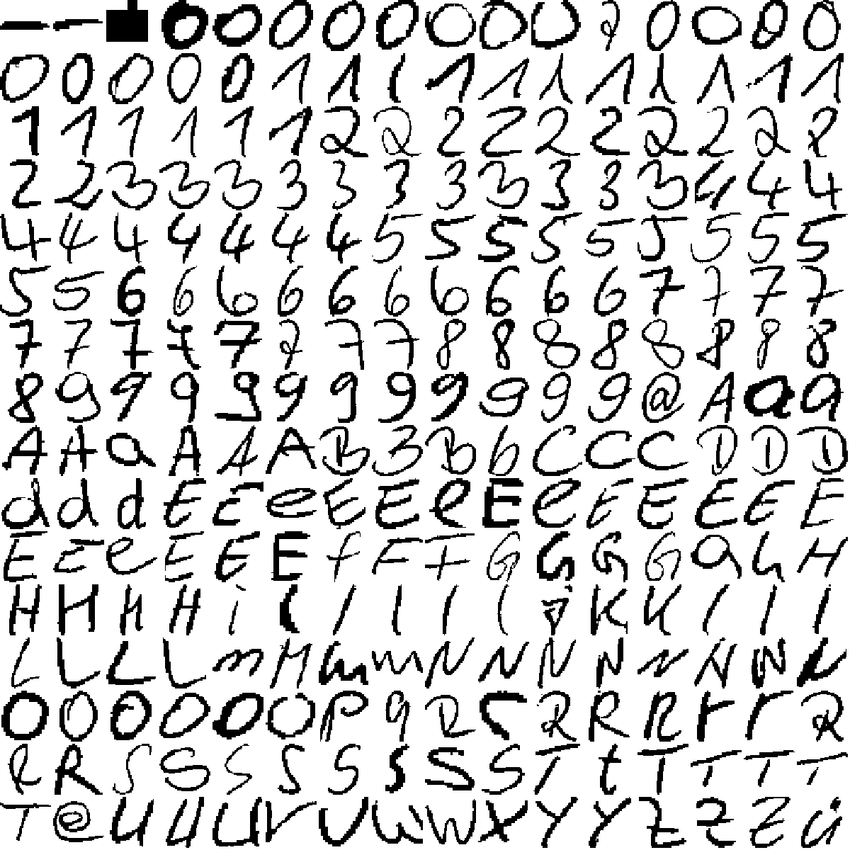 — — ■ 0 0 0 0 0 0 0 0 2 0 0 0 0
0 0 0 0 0 1 1 1 1 1 1 1 1 1 1 1
1 1 1 1 1 1 2 2 2 2 2 2 2 2 2 2
2 2 3 3 3 3 3 3 3 3 3 3 3 4 4 4
4 4 4 4 4 4 4 5 5 5 5 5 5 5 5 5
5 5 6 6 6 6 6 6 6 6 6 6 7 7 7 7
7 7 7 7 7 7 7 7 8 8 8 8 8 8 8 8
8 9 9 9 9 9 9 9 9 9 9 9 @ A a a
A A a A A A B 3 B b C C C D D D
d d d E E e E E e E e E E E E E
E E e E E E f F F G G G G a h H
H H H H i l l l l l J K K l l l
L L L L m M m m N N N N N N N N
O O O O O O P q R r R R R r r R
R R S S S S S S S S T t T T T T
T @ U U U V U W W X Y Y Z Z Z ü